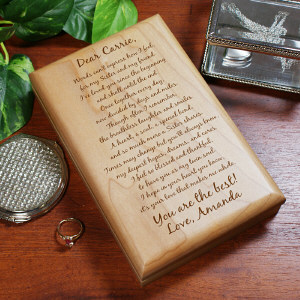 Dear Carrie,
Words can't express how I feel,
for my Sister and my friend.
I've loved you since the beginning
and shall until the end.
Once together every day,
now divided by days and miles.
Though often I remember,
the breathless laughter and smiles.
A heart, a soul, a special bond,
and so much more a Sister shares.
Times may change but you'll always know
my deepest hopes, dreams, and cares.
I'm so blessed and thankful,
to have you as my own.
I hope in your heart you know,
it's your love that makes me whole.
You are the best!
Love, Amanda